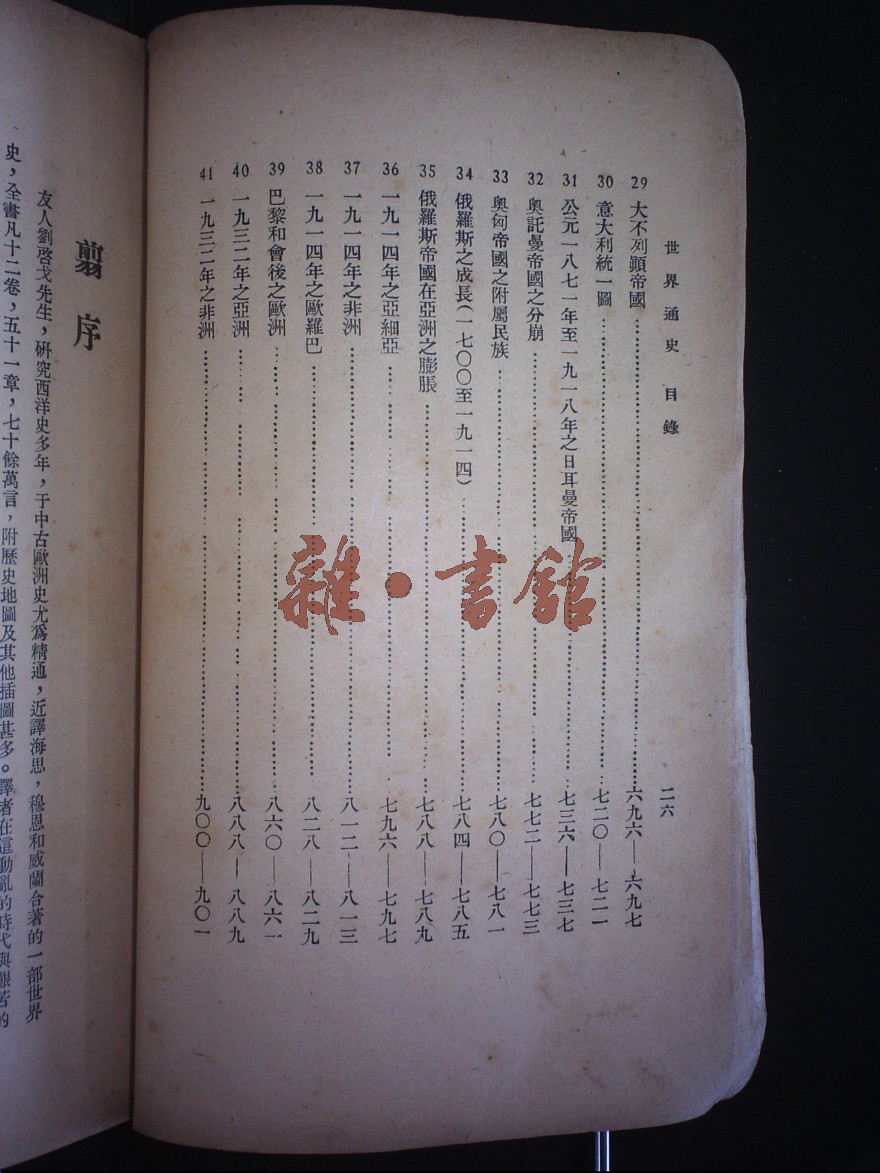 世界通史 目錄
二六
29 大不列顛帝國 六九六—六九七
30 意大利統一圖 七二〇—七二一
31 公元一八七一年至一九一八年之日耳曼帝國 七三六—七三七
32 奧託曼帝國之分崩 七七二—七七三
33 奧匈帝國之附屬民族 七八〇—七八一
34 俄羅斯之成長(一七〇〇至一九一四) 七八四—七八五
35 俄羅斯帝國在亞洲之膨脹 七八八—七八九
36 一九一四年之亞細亞 七九六—七九七
37 一九一四年之非洲 八一二—八一三
38 一九一四年之歐羅巴 八二八—八二九
39 巴黎和會後之歐洲 八六〇—八六一
40 一九三二年之亞洲 八八八—八八九
41 一九三二年之非洲 九〇〇—九〇一
翦序
友人劉啓戈先生,研究西洋史多年,于中古歐洲史尤爲精通,近譯海思,穆恩和威蘭合著的一部世界
史,全書凡十二卷,五十一章,七十餘萬言,附歷史地圖及其他插圖甚多。譯者在這動亂的時代與艱苦的
雜·書館